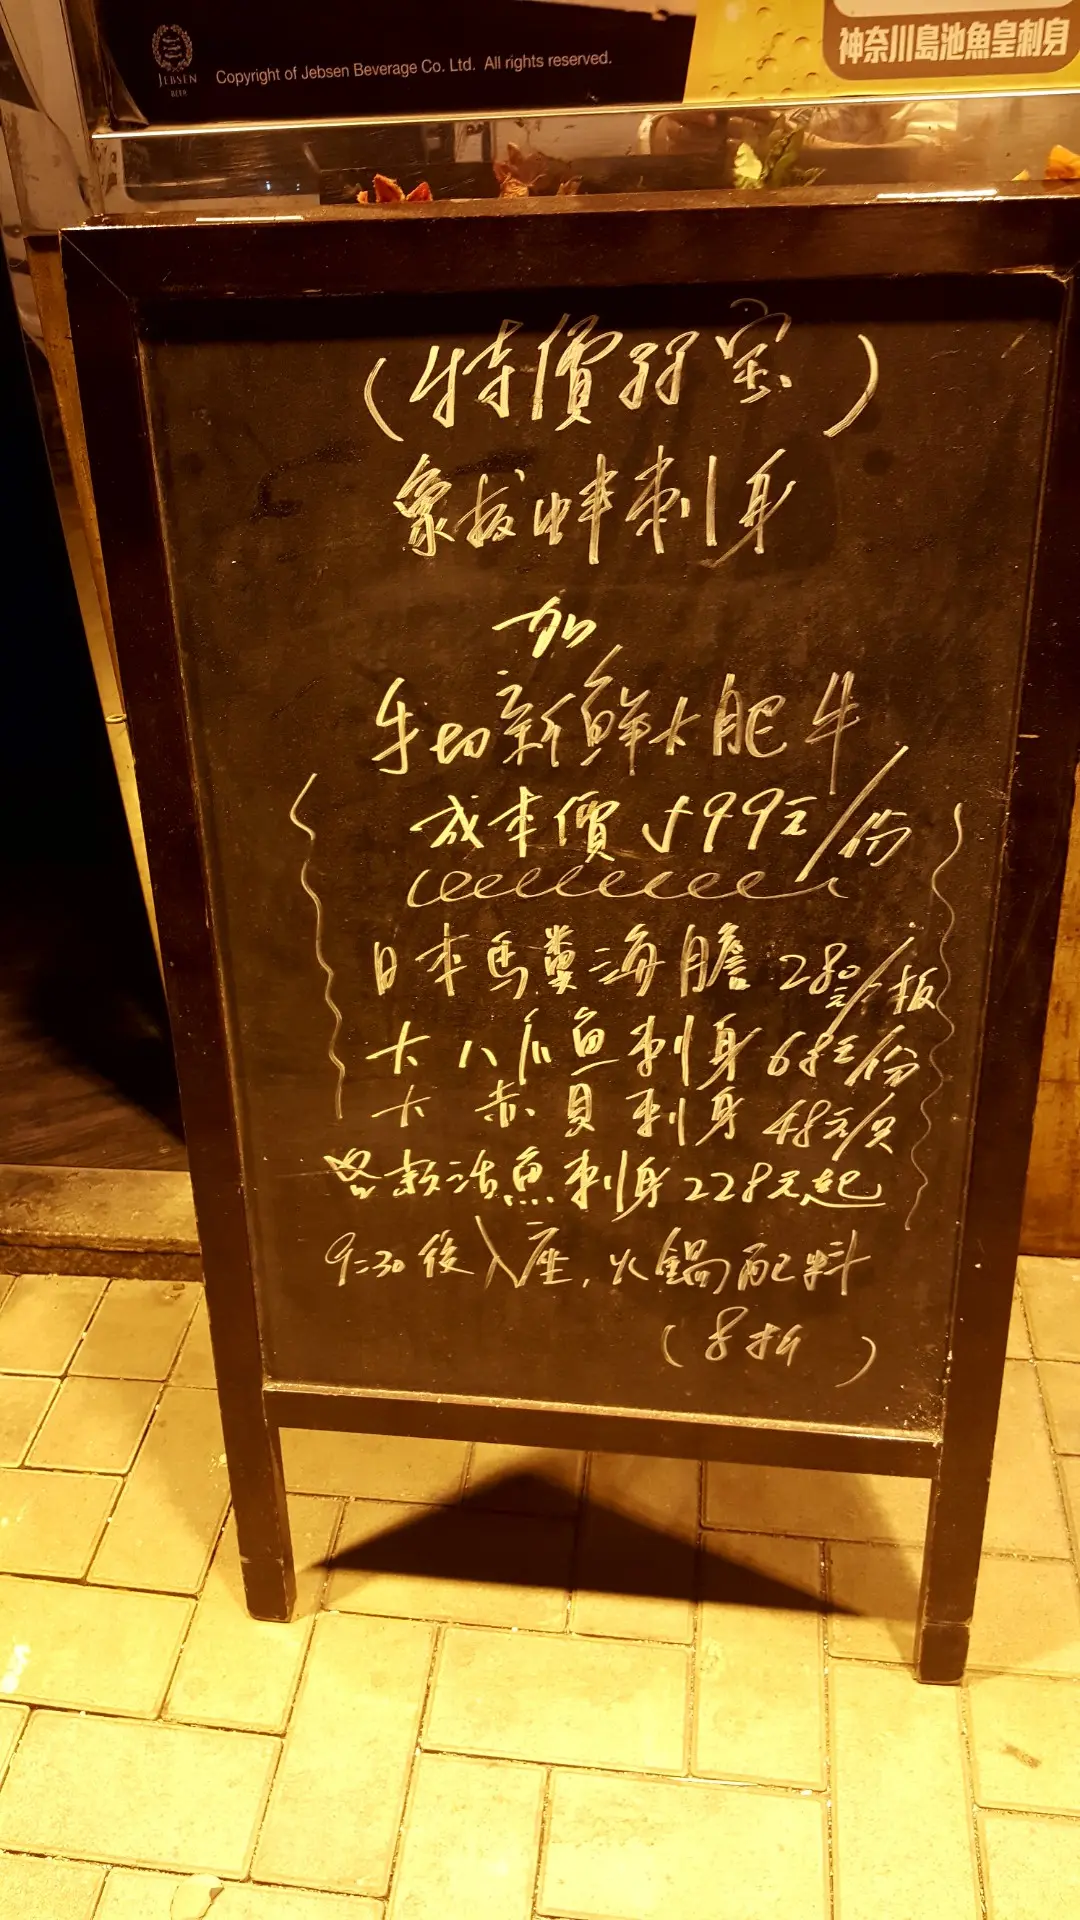 JEBSEN
BEER
Copyright of Jebsen Beverage Co. Ltd. All rights reserved.
神奈川島池魚皇刺身
(特價
象拔蚌刺身
加
手切新鮮大肥牛
成本價 199元/份
日本馬糞海膽 280元/板
大八爪魚刺身 68元/份
大赤貝刺身 48元/只
各款活魚刺身 228元起
9:30後入座,火鍋配料
(8折)